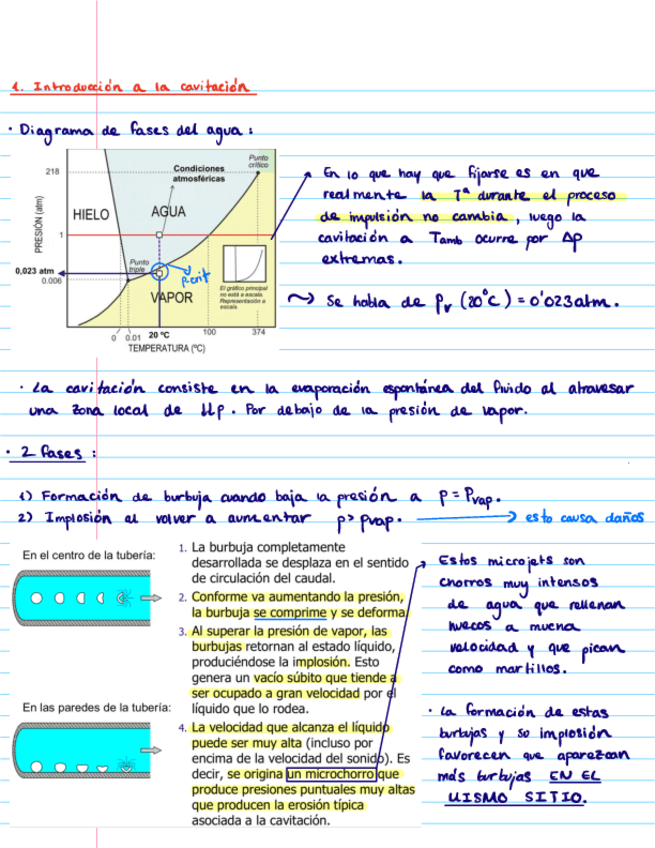 1. Introducción a la cavitación
· Diagrama de fases del agua:
218
Punto
crítico
Condiciones
atmosféricas
HIELO
AGUA
PRESIÓN (atm)
1
0,023 atm
0.006
Punto
triple
Pcrit
VAPOR
El gráfico principal
no está a escala.
Representación a
escala
0
0.01
20 ºC
100
374
TEMPERATURA (ºC)
En lo que hay que fijarse es en que
realmente la Tª durante el proceso
de impulsión no cambia, luego la
cavitación a Tamb ocurre por Δp
extremas.
~> Se habla de Pv (20°C) = 0'023atm.
· La cavitación consiste en la evaporación espontánea del fluido al atravesar
una zona local de ↓↓p. Por debajo de la presión de vapor.
· 2 fases:
1) Formación de burbuja cuando baja la presión a p = Pvap.
2) Implosión al volver a aumentar p > pvap. → esto causa daños
En el centro de la tubería:
En las paredes de la tubería:
1. La burbuja completamente
desarrollada se desplaza en el sentido
de circulación del caudal.
2. Conforme va aumentando la presión,
la burbuja se comprime y se deforma.
3. Al superar la presión de vapor, las
burbujas retornan al estado líquido,
produciéndose la implosión. Esto
genera un vacío súbito que tiende a
ser ocupado a gran velocidad por el
líquido que lo rodea.
4. La velocidad que alcanza el líquido
puede ser muy alta (incluso por
encima de la velocidad del sonido). Es
decir, se origina un microchorro que
produce presiones puntuales muy altas
que producen la erosión típica
asociada a la cavitación.
Estos microjets son
chorros muy intensos
de agua que rellenan
huecos a mucha
velocidad y que pican
como martillos.
· La formación de estas
burbujas y su implosión
favorecen que aparezcan
más burbujas EN EL
MISMO SITIO.